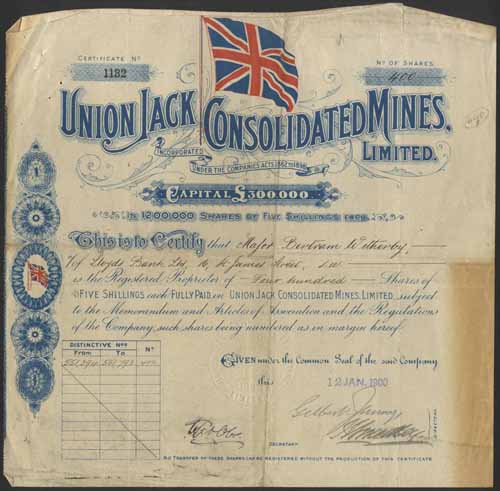 CERTIFICATE Nº
1132
Nº OF SHARES
400
UNION JACK CONSOLIDATED MINES, LIMITED.
INCORPORATED
UNDER THE COMPANIES ACTS
CAPITAL £300,000
IN 1,200,000 SHARES OF FIVE SHILLINGS EACH
This is to Certify that Major Bertram Witherby
c/o Lloyds Bank Ltd, 16, St James Street, S.W.
is the Registered Proprietor of Four hundred Shares of
FIVE SHILLINGS each FULLY PAID in UNION JACK CONSOLIDATED MINES, LIMITED, subject
to the Memorandum and Articles of Association and the Regulations
of the Company, such shares being numbered as in margin hereof.
DISTINCTIVE NOS
From To Nº
GIVEN under the Common Seal of the said Company
this 12 JAN. 1900
SECRETARY
NO TRANSFER OF THESE SHARES CAN BE REGISTERED WITHOUT THE PRODUCTION OF THIS CERTIFICATE